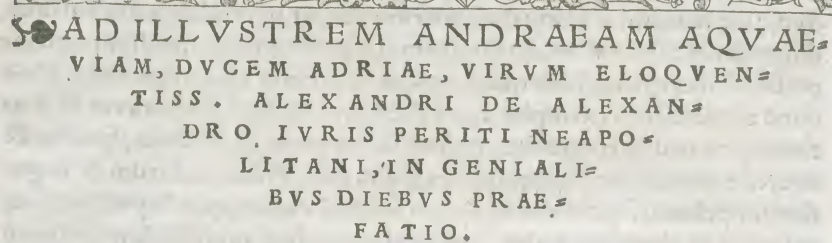 AD ILLVSTREM ANDRAEAM AQVAE=
VIAM, DVCEM ADRIAE, VIRVM ELOQVEN=
TISS. ALEXANDRI DE ALEXAN=
DRO, IVRIS PERITI NEAPO=
LITANI, IN GENIALI=
BVS DIEBVS PRAE=
FATIO.